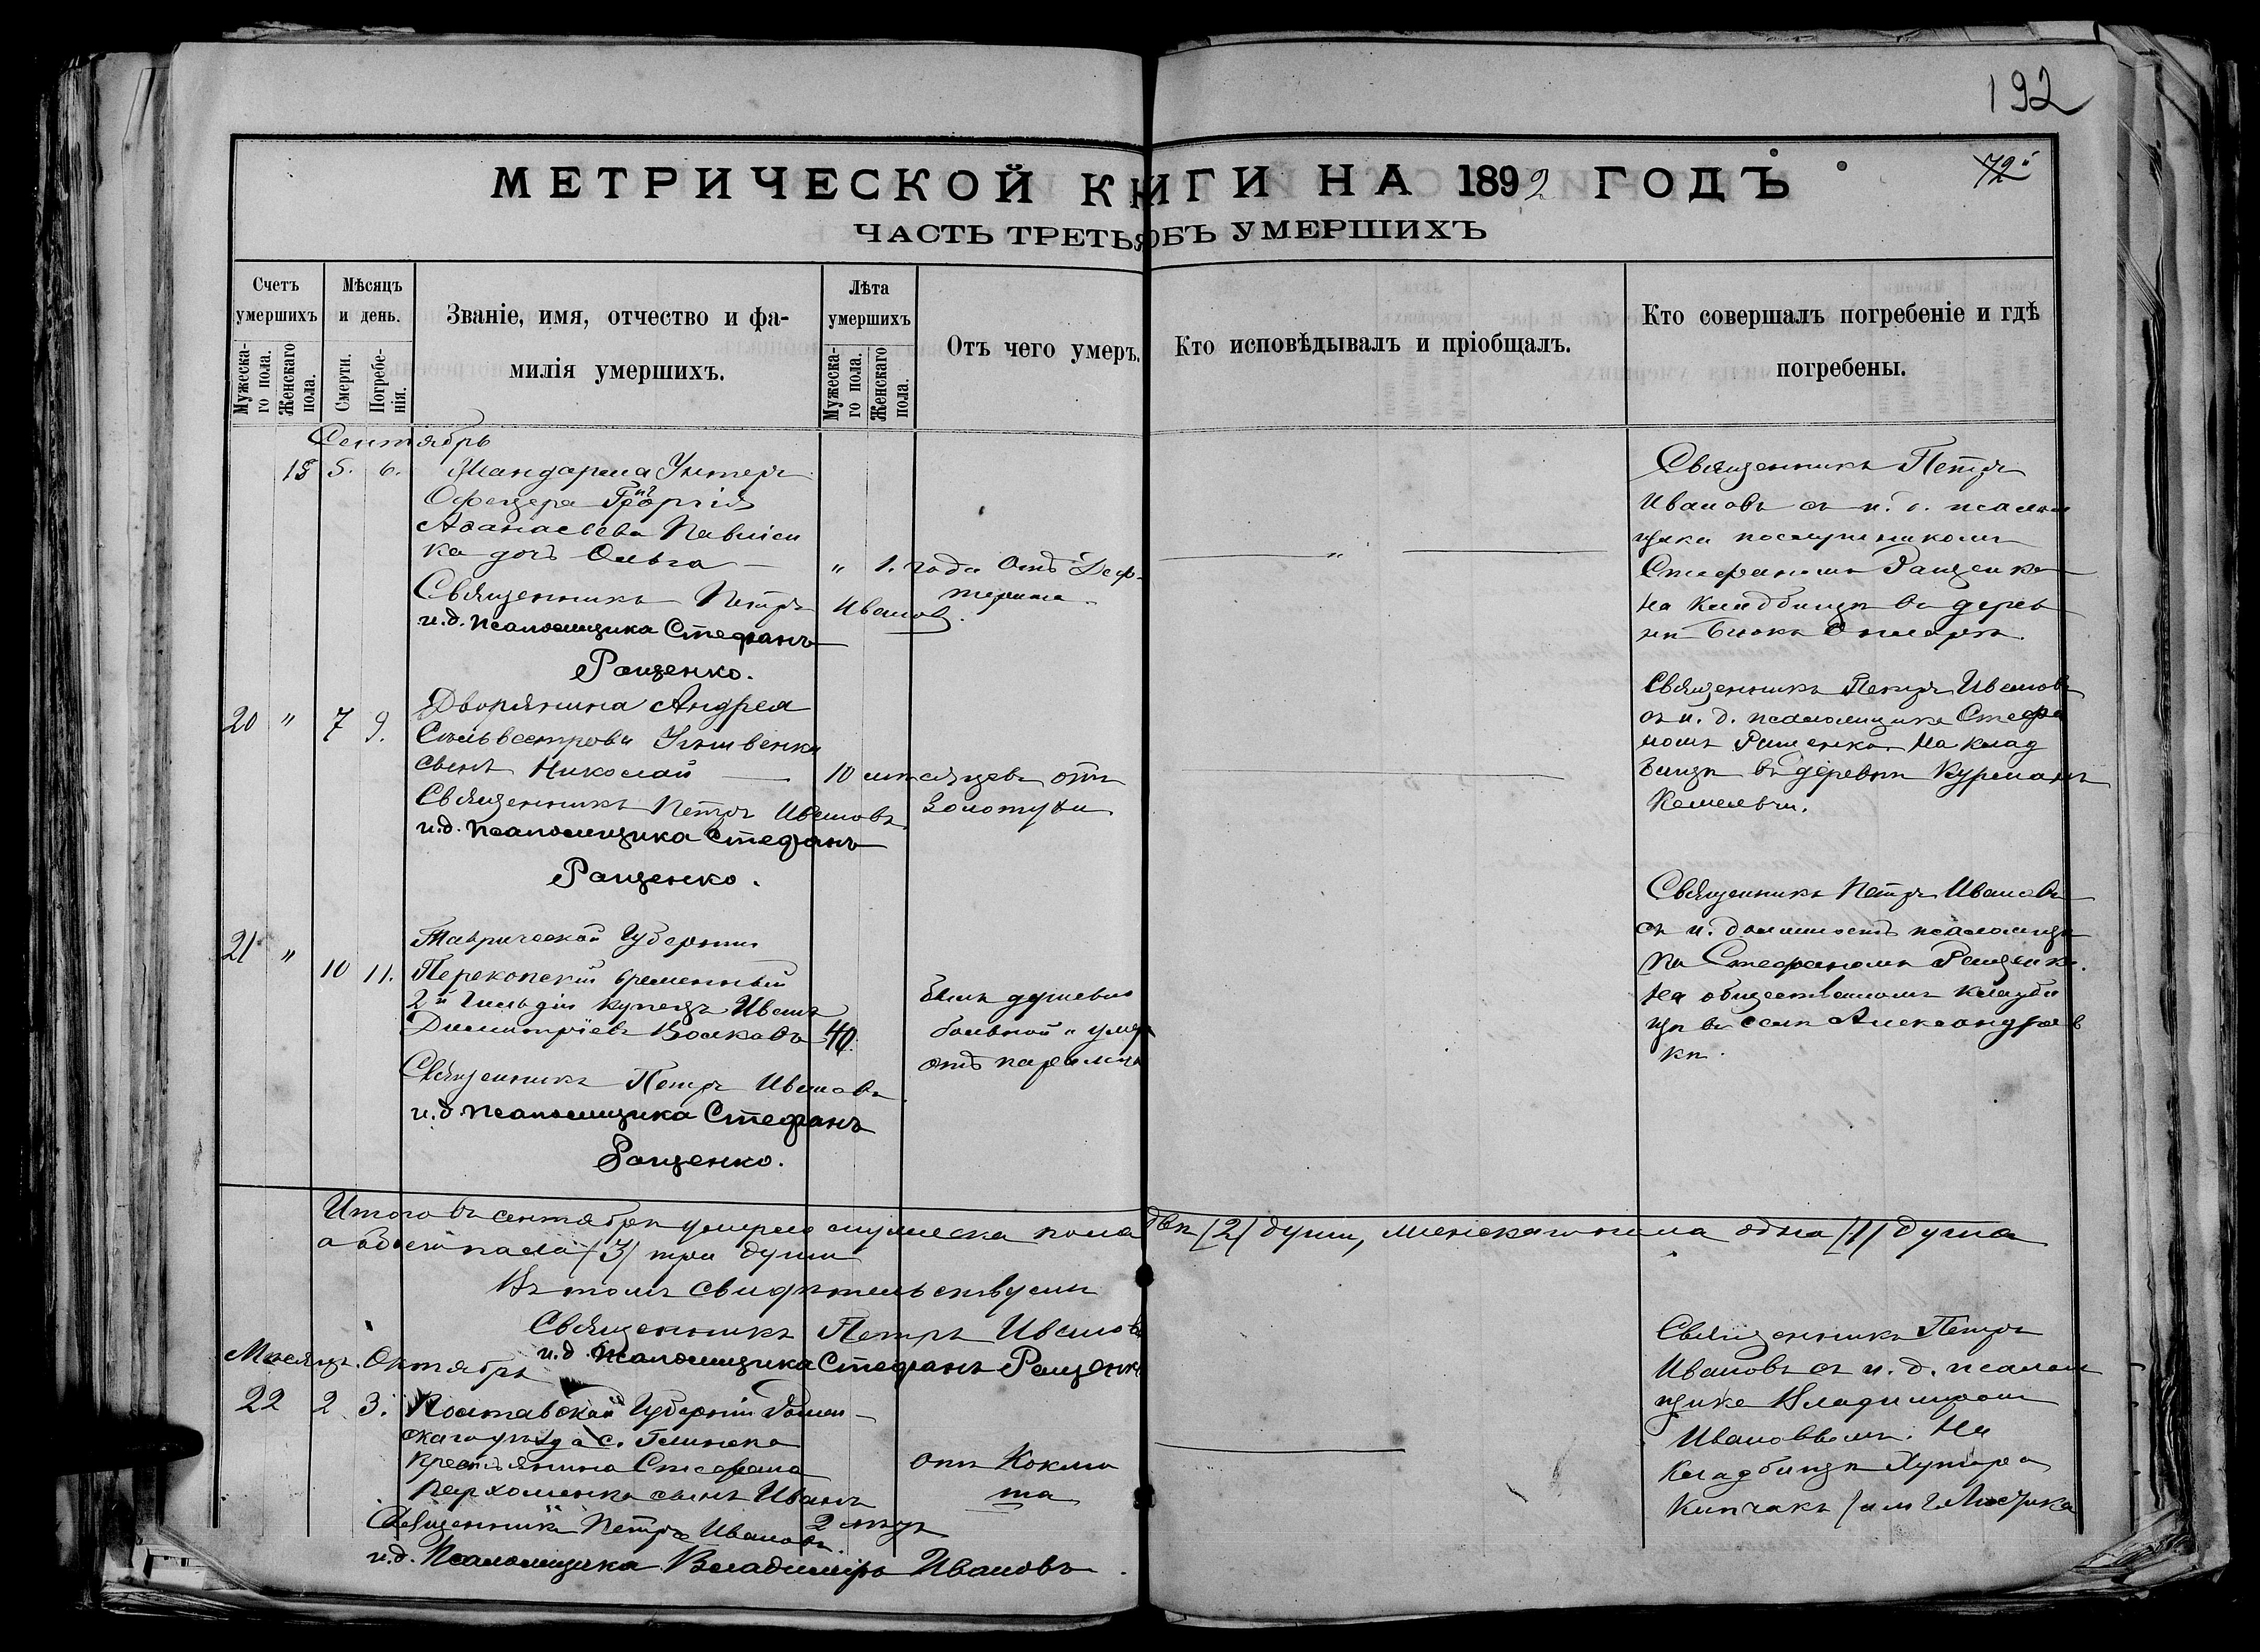 192
72
МЕТРИЧЕСКОЙ КНИГИ НА 1892 ГОДЪ
ЧАСТЬ ТРЕТЬЯ ОБЪ УМЕРШИХЪ
Счетъ умершихъ
Мужеска-го пола.
Женскаго пола.
Мѣсяцъ и день.
Смерти.
Погребе-нія.
Званіе, имя, отчество и фа-
милія умершихъ.
Лѣта умершихъ
Мужеска-го пола.
Женскаго пола.
Отъ чего умеръ.
Кто исповѣдывалъ и пріобщалъ.
Кто совершалъ погребеніе и гдѣ
погребены.
Сентябрь
5. 6. Жандарма Унтеръ
Офицера Георгія
Аѳанасьева
дочь Ольга
" 1. года Отъ Деф-
терита
Священникъ Петръ Иванов.
и.д. псаломщика Стефанъ
Ращенко.
Священникъ Петръ
Ивановъ съ и. д. псалом
щика
Стефаномъ Ращенко
на кладбищѣ въ дерев
нѣ
20 " 7 9. Дворянина Андрея
Сильвестрова
сынъ Николай
10 мѣсяцевъ отъ
золотухи
Священникъ Петръ Ивановъ
и.д. псаломщика Стефанъ
Ращенко.
Священникъ Петръ Ивановъ
съ и. д. псаломщика Стефа
номъ Ращенко. На клад
бищѣ въ деревнѣ Курманъ
Кемельчи.
21 " 10 11. Таврической Губерніи
Перекопскій временный
2й Гильдіи купецъ Иванъ
Димитріевъ Волковъ 40.
Былъ душевно
больной и умеръ
отъ паралича
Священникъ Петръ Ивановъ
и.д. псаломщика Стефанъ
Ращенко.
Священникъ Петръ Ивановъ
съ и. должность псаломщи
ка Стефаномъ Ращенко.
На общественномъ кладби
щѣ въ селѣ Александров
кѣ.
Итого въ сентябрѣ умерло мужеска пола двѣ (2) души, женскаго пола одна (1) душа
а обоего пола (3) три души
Въ томъ свидѣтельствуемъ
Священникъ Петръ Ивановъ
и.д. псаломщика Стефанъ Ращенко
Мѣсяцъ. Октябрь
22 2 3. Полтавской Губерніи Ромен-
скаго уѣзда с. Глинска
крестьянина Стефана
Пархоменка сынъ Иванъ
2 лѣтъ
отъ Коклю
ша
Священникъ Петръ Ивановъ.
и.д. Псаломщика Владиміръ Ивановъ.
Священникъ Петръ
Ивановъ съ и. д. псалом
щика Владиміромъ
Ивановымъ. На
кладбищѣ Хутора
Кипчакъ